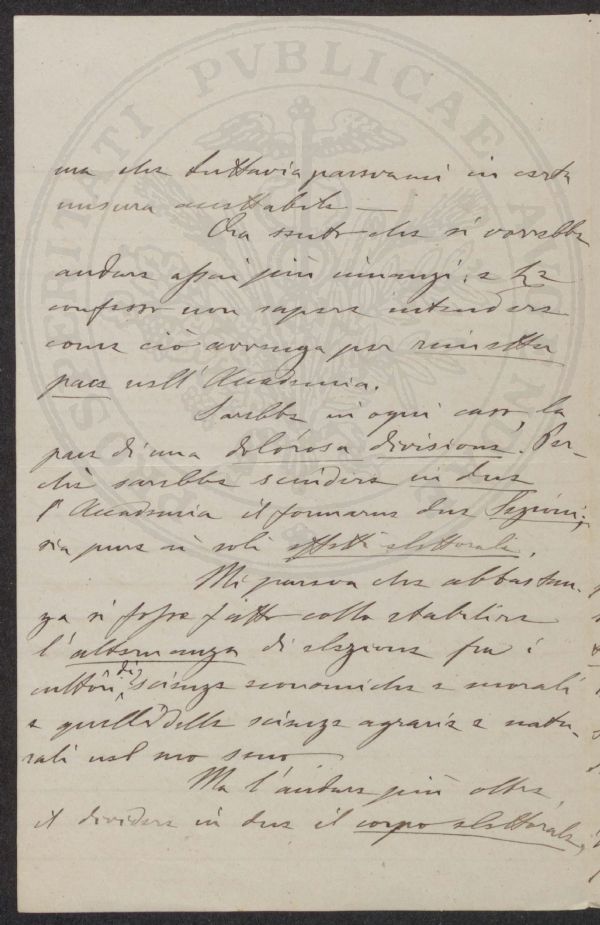 PROSPERITATI PVBLICAE AVGENDAE
ma che tuttavia parevami in certa
misura accettabile —
Ora sento che si vorrebbe
andare assai più innanzi; e Le
confesso non sapere intendere
come ciò avvenga per rimetter
pace nell'Accademia.
Sarebbe in ogni caso, la
pace di una dolorosa divisione. Per-
chè sarebbe scindere in due
l'Accademia il formarne due Sezioni,
sia pure ai soli effetti elettorali.
Mi pareva che abbastan-
za si fosse fatto collo stabilire
l'alternanza di elezione fra i
cultori di scienze economiche e morali
e quelli delle scienze agrarie e natu-
rali nel suo seno.
Ma l'andare più oltre,
il dividere in due il corpo elettorale,